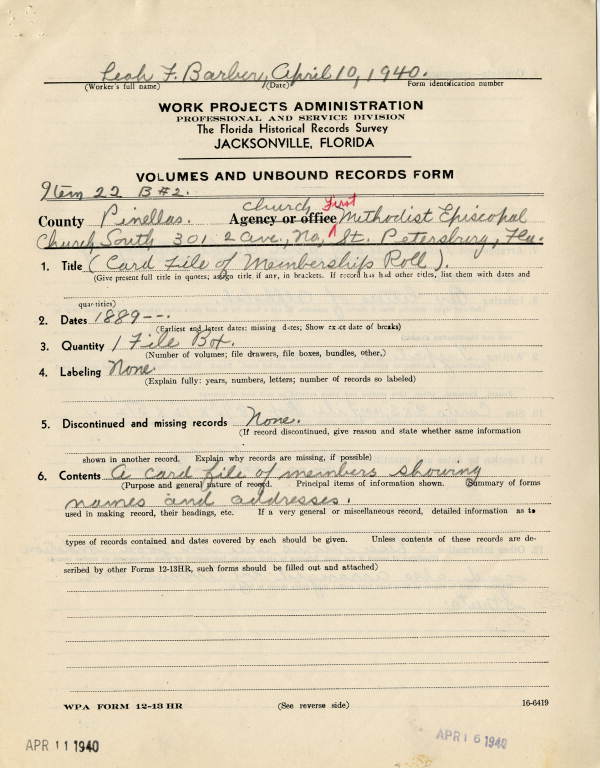 Leah F. Barber, April 10, 1940.
(Worker's full name) (Date) Form identification number
WORK PROJECTS ADMINISTRATION
PROFESSIONAL AND SERVICE DIVISION
The Florida Historical Records Survey
JACKSONVILLE, FLORIDA
VOLUMES AND UNBOUND RECORDS FORM
Item 22 B#2.
Church First
County Pinellas. Agency or office Methodist Episcopal
Church, South 301 2 ave., No, St. Petersburg, Fla.
1. Title (Card File of Membership Roll).
(Give present full title in quotes; assign title if any, in brackets. If record has had other titles, list them with dates and
quantities)
2. Dates 1889--.
(Earliest and latest dates: missing dates; Show exact date of breaks)
3. Quantity 1 File Box.
(Number of volumes; file drawers, file boxes, bundles, other,)
4. Labeling None.
(Explain fully: years, numbers, letters; number of records so labeled)
5. Discontinued and missing records None.
(If record discontinued, give reason and state whether same information
shown in another record. Explain why records are missing, if possible)
6. Contents A card file of members showing
(Purpose and general nature of record. Principal items of information shown. Summary of forms
names and addresses.
used in making record, their headings, etc. If a very general or miscellaneous record, detailed information as to
types of records contained and dates covered by each should be given. Unless contents of these records are de-
scribed by other Forms 12-13HR, such forms should be filled out and attached)
WPA FORM 12-13 HR (See reverse side) 16-6419
APR 11 1940 APR 16 1940